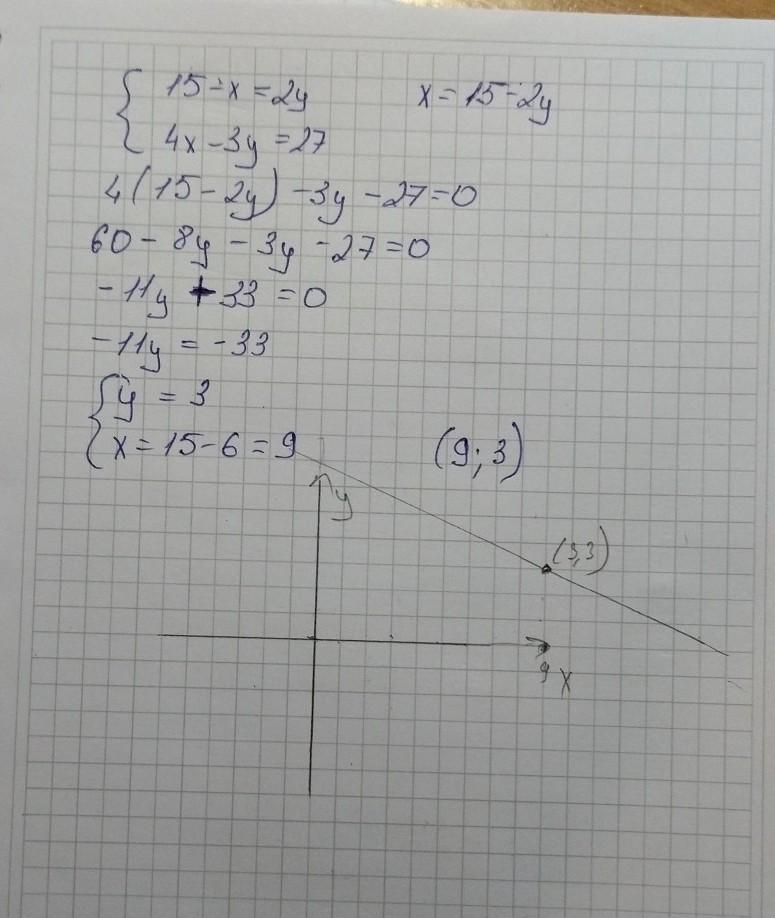 15 - x = 2y
x = 15 - 2y
4x - 3y = 27
4(15 - 2y) - 3y - 27 = 0
60 - 8y - 3y - 27 = 0
-11y + 33 = 0
-11y = -33
y = 3
x = 15 - 6 = 9
(9; 3)
y
(9,3)
9
x